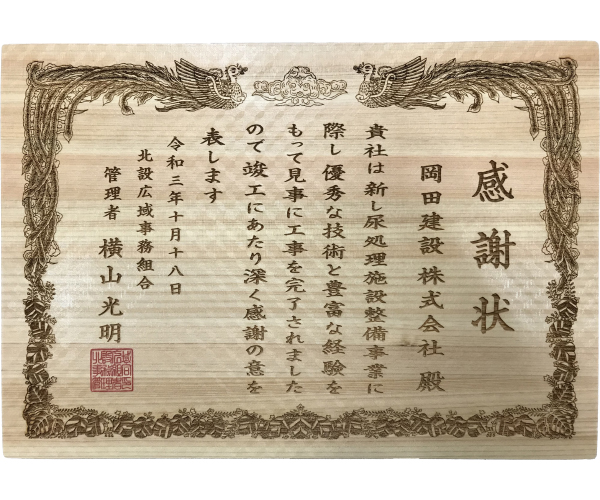 感謝状
岡田建設株式会社 殿
貴社は新し尿処理施設整備事業に
際し優秀な技術と豊富な経験を
もって見事に工事を完了されました
ので竣工にあたり深く感謝の意を
表します
令和三年十月十八日
北設広域事務組合
管理者 横山光明